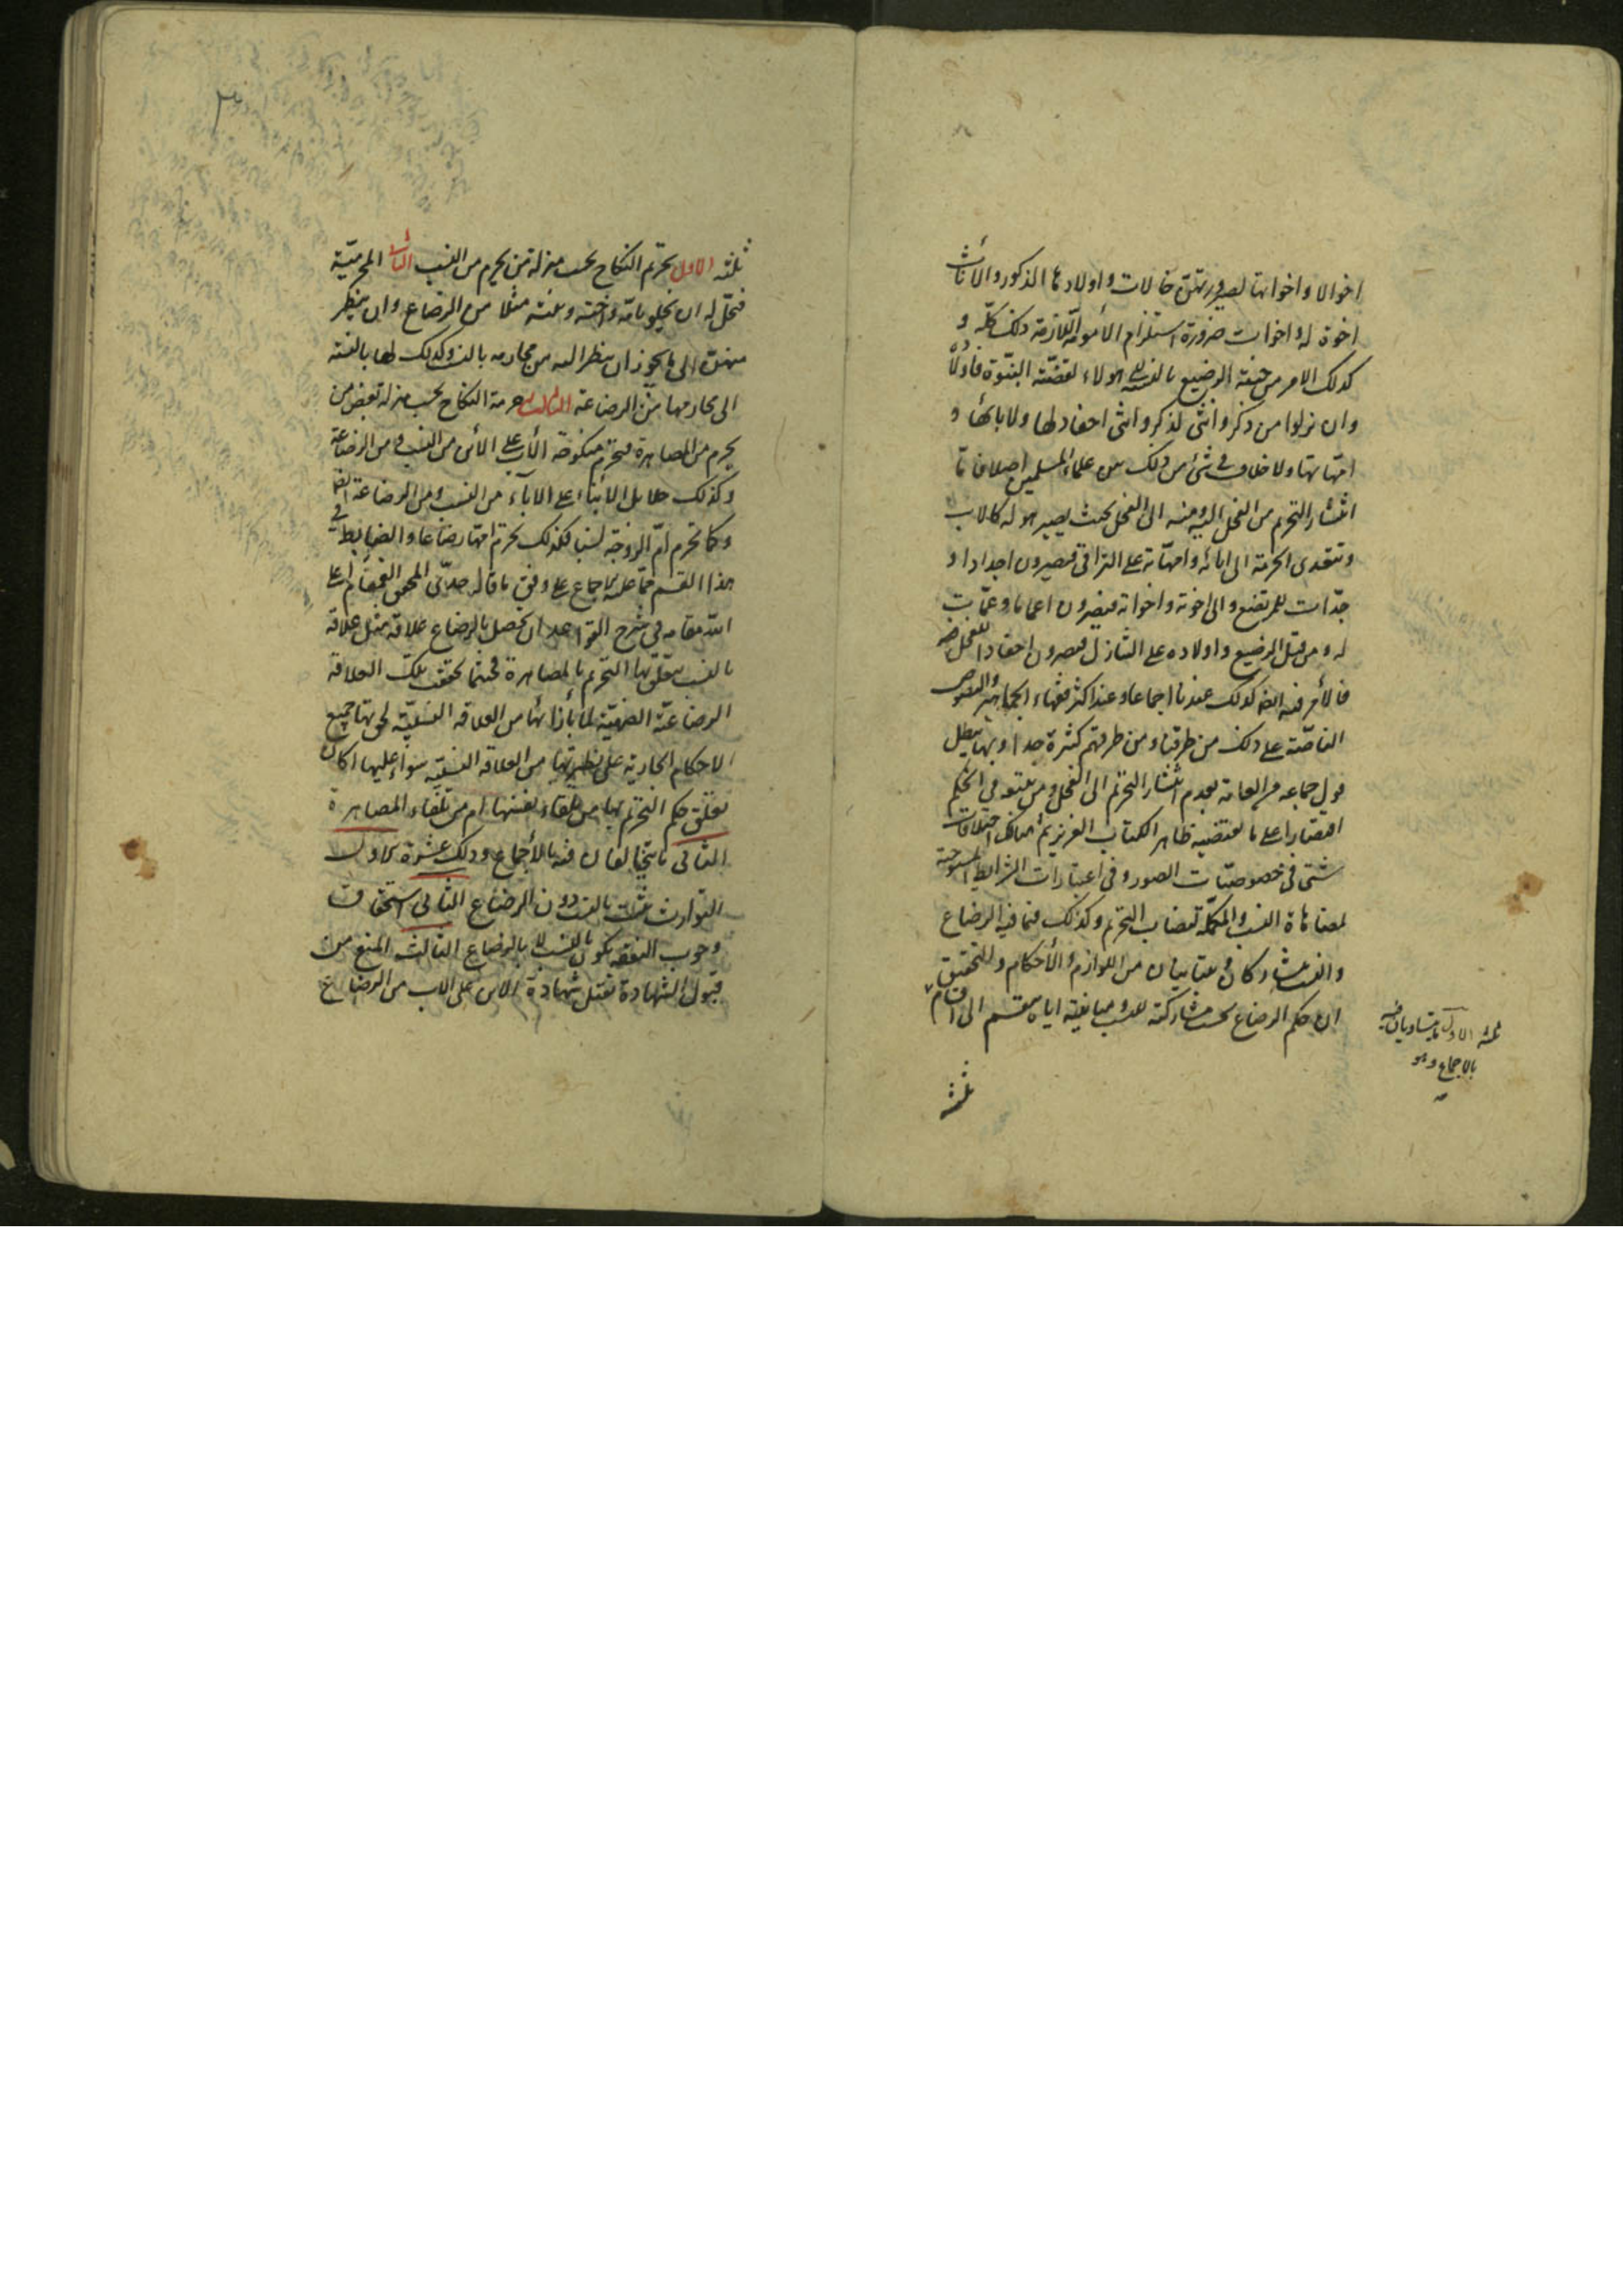 اخوالا واخواتها لصيرورتهن خالات واولادها الذكور والاناث
اخوة له واخوات ضرورة استلزام الأمومة اللازمة ذلك كله و
كذلك الامر من جنبة الرضيع بالنسبة الى هولاء لقضية البنوة فاولاده
وان نزلوا من ذكر وانثى لذكر وانثى احفاد لها ولابائها و
امهاتها ولا خلاف في شئ من ذلك بين علماء المسلمين اصلا فاما
انتشار التحريم من الفحل اليه ومنه الى الفحل بحيث يصير هو له كالاب
وتتعدى الحرمة الى ابائه وامهاته على التراقي فيصيرون اجدادا و
جدات للمرتضع والى اخوته واخواته فيصيرون اعماما وعمات
له ومن قبل الرضيع واولاده على التنازل فيصيرون احفادا للفحل
فالأمر فيه ايضا كذلك عندنا اجماعا وعند اكثر فقهاء الجماهير والنصوص
الناصة على ذلك من طرقنا ومن طرقهم كثيرة جدا وبها يبطل
قول جماعة من العامة بعدم انتشار التحريم الى الفحل ومن يتبعه في الحكم
اقتصارا على ما يقتضيه ظاهر الكتاب العزيز ثم هنالك اختلافات
شتى في خصوصيات الصور وفي اعتبارات الشرائط الموجبة
لمضاهاة النسب والمكملة لنصاب التحريم وكذلك فيما فيه الرضاع
والنسب يتشاركان او يتباينان من اللوازم والأحكام والتحقيق
ان حكم الرضاع بحسب مشاركته للنسب ومباينته اياه ينقسم الى اقسام
ثلثه
ثلثه الاول ما يتساويان فيه
بالاجماع وهو
ثلثه الاول تحريم النكاح بحسب منزلة من يحرم من النسب الثاني المحرمية
فيحل له ان يخلو بامه واخته وبنته مثلا من الرضاع وان ينظر
منهن الى ما يجوز ان ينظر اليه من محارمه بالنسب وكذلك لها بالنسبة
الى محارمها من الرضاعة الثالث حرمة النكاح بحسب منزلة بعض من
يحرم من المصاهرة فتحرم منكوحة الأب على الأبن من النسب ومن الرضاعة
وكذلك حلايل الأبناء على الاباء من النسب ومن الرضاعة ايضا
وكما تحرم ام الزوجة نسبا فكذلك تحرم امها رضاعا والضابط في
هذا القسم مما عليه الاجماع على وفق ما قاله جدي المحقق القمقام اعلى
الله مقامه في شرح القواعد ان يحصل بالرضاع علاقة مثل علاقة
بالنسب يتعلق بها التحريم بالمصاهرة فحيثما تحقق تلك العلاقة
الرضاعية الضهيّة لما بأزائها من العلاقة النسبية لحق بها جميع
الاحكام الجارية على نظيرتها من العلاقة النسبية سواء عليها اكان
تعلق حكم التحريم بها من تلقاء نفسها ام من تلقاء المصاهرة
الثاني ما يتخالفان فيه بالأجماع وذلك عشرة الاول
التوارث يثبت بالنسب دون الرضاع الثاني استحقاق
وجوب النفقة يكون بالنسب لا بالرضاع الثالث المنع من
قبول الشهادة تقبل شهادة الابن على الاب من الرضاع